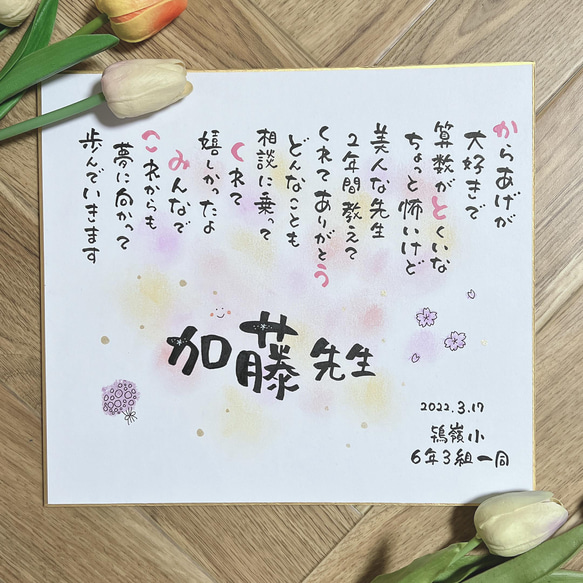 からあげが
大好きで
算数がとくいな
ちょっと怖いけど
美人な先生
2年間教えて
くれてありがとう
どんなことも
相談に乗って
くれて
嬉しかったよ
みんなで
これからも
夢に向かって
歩んでいきます
加藤先生
2022.3.17
鴇嶺小
6年3組一同